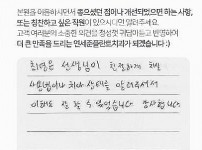 본원을 이용하시면서 좋으셨던 점이나 개선되었으면 하는 사항,
또는 칭찬하고 싶은 직원이 있으시다면 알려주세요.
고객 여러분의 소중한 의견을 정성껏 귀담아듣고 반영하여
더 큰 만족을 드리는 연세준플란트치과가 되겠습니다 :)
최영은 선생님이 친절하게 치료
사용법이나 치아 상태를 알려주셔서
이해도 잘 할 수 있었습니다 감사합니다